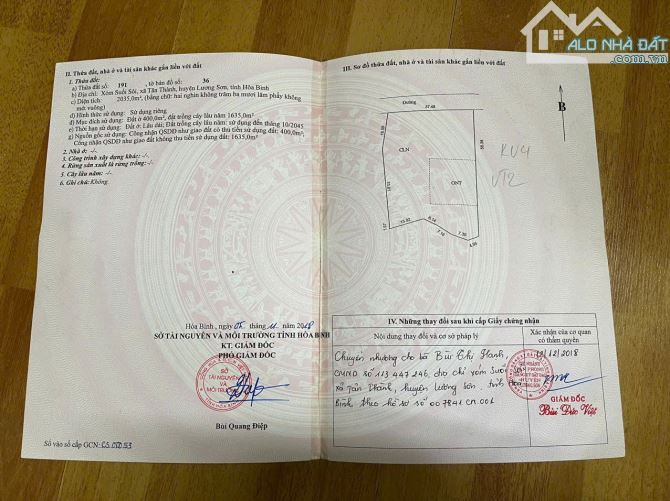 ALO NHÀ ĐẤT
.com.vn
II. Thửa đất, nhà ở và tài sản khác gắn liền với đất
1. Thửa đất:
a) Thửa đất số: 191, tờ bản đồ số: 36
b) Địa chỉ: Xóm Suối Sỏi, xã Tân Thành, huyện Lương Sơn, tỉnh Hòa Bình
c) Diện tích: 2035,0m², (bằng chữ: hai nghìn không trăm ba mươi lăm phẩy không
mét vuông)
d) Hình thức sử dụng: Sử dụng riêng
đ) Mục đích sử dụng: Đất ở 400,0m², đất trồng cây lâu năm: 1635,0m²
e) Thời hạn sử dụng: Đất ở: Lâu dài; Đất trồng cây lâu năm: sử dụng đến tháng 10/2045
g) Nguồn gốc sử dụng: Công nhận QSDĐ như giao đất có thu tiền sử dụng đất: 400,0m²,
Công nhận QSDĐ như giao đất không thu tiền sử dụng đất: 1635,0m²
2. Nhà ở: -/-
3. Công trình xây dựng khác: -/-
4. Rừng sản xuất là rừng trồng: -/-
5. Cây lâu năm: -/-
6. Ghi chú: Không.
Hòa Bình, ngày 05 tháng 11 năm 2018
SỞ TÀI NGUYÊN VÀ MÔI TRƯỜNG TỈNH HÒA BÌNH
KT. GIÁM ĐỐC
PHÓ GIÁM ĐỐC
SỞ
TÀI NGUYÊN
VÀ
MÔI TRƯỜNG
Bùi Quang Điệp
Số vào sổ cấp GCN:
III. Sơ đồ thửa đất, nhà ở và tài sản khác gắn liền với đất
Đường
37.68
B
CLN
ONT
KV4
VT2
IV. Những thay đổi sau khi cấp Giấy chứng nhận
Nội dung thay đổi và cơ sở pháp lý
Xác nhận của cơ quan
có thẩm quyền
Chuyển nhượng cho bà Bùi Thị Hanh,
CMND số 113 447 246, địa chỉ xóm Suối
xã Tân Thành, huyện Lương Sơn, tỉnh Hòa
Bình theo hồ sơ số 007841.CN.001
12/2018
GIÁM ĐỐC
Bùi Đức Việt